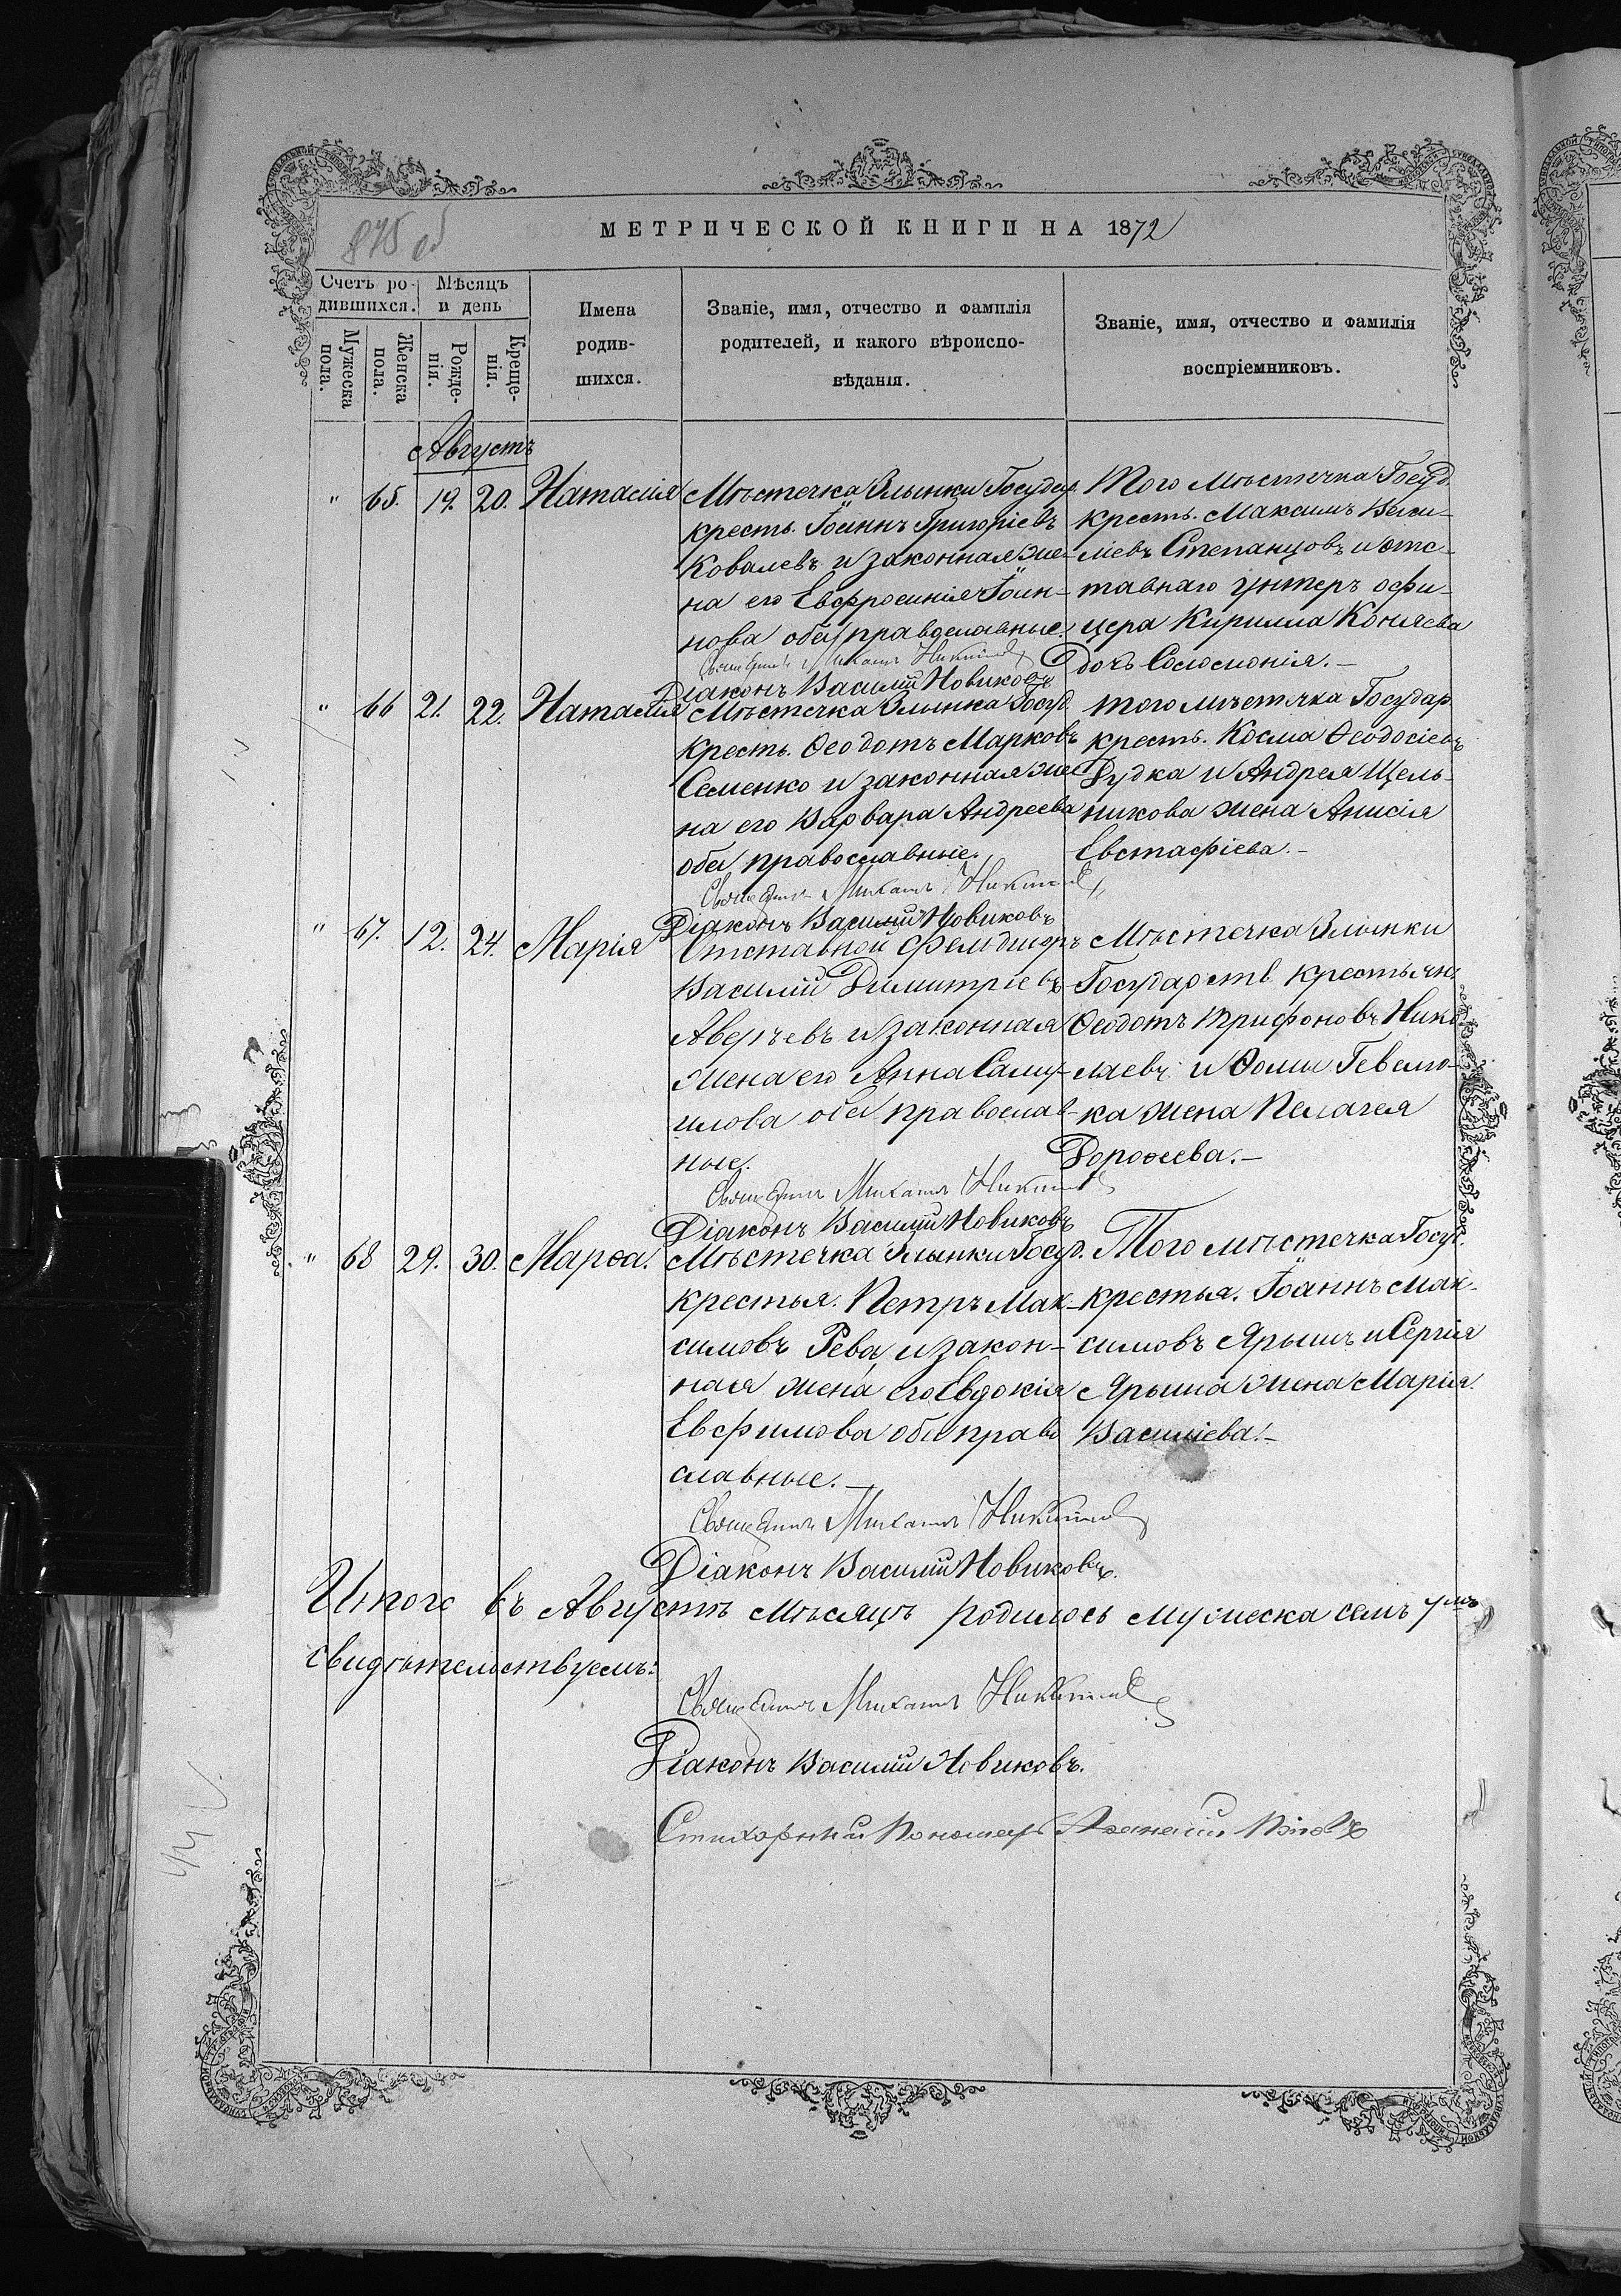 875 об
МЕТРИЧЕСКОЙ КНИГИ НА 1872
Счетъ ро-
дившихся.
Мѣсяцъ
и день
Мужеска
пола.
Женска
пола.
Рожде-
нія.
Креще-
нія.
Имена
родив-
шихся.
Званіе, имя, отчество и фамилія
родителей, и какого вѣроиспо-
вѣданія.
Званіе, имя, отчество и фамилія
воспріемниковъ.
Августъ
" 65. 19. 20. Наталія
Мѣстечка Злынки Государ.
кресть. Іоаннъ Григоріевъ
Ковалевъ и законная же-
на его Евфросинія Іоан-
нова оба православные.
Священникъ Михаилъ
Діаконъ Василій Новиковъ
Того мѣстечка Госуд.
кресть. Максимъ Васи-
ліевъ Степанцовъ и отс-
тавнаго унтеръ офи-
цера Кирилла Коняева
дочь Соломонія.-
" 66 21. 22. Наталія
Мѣстечка Злынка Госуд.
кресть. Ѳеодотъ Марковъ
Семенко и законная же
на его Варвара Андреева
оба православные.
Священникъ Михаилъ
Діаконъ Василій Новиковъ
того мѣстечка Государ.
кресть. Косма Ѳеодосіевъ
Дудка и Андрея Щель-
никова жена Анисія
Евстафіева.-
" 67. 12. 24. Марія
Отставной Фельдшеръ
Василій Димитріевъ
Аверьевъ и законная
жена его Анна Саму-
илова оба православ-
ные.
Священникъ Михаилъ
Діаконъ Василій Новиковъ
Мѣстечка Злынки
Государств. крестьян.
Ѳеодотъ Трифоновъ Нико
лаевъ и Ѳомы Гевелю-
ка жена Пелагея
Дороѳеева.-
" 68 29. 30. Марѳа.
Мѣстечка Злынки Госуд.
крестья. Петръ Мак-
симовъ Рева, и закон-
ная жена его Евдокія
Евфимова оба право
славные.-
Священникъ Михаилъ
Діаконъ Василій Новиковъ.
Того мѣстечка Госуд.
крестья. Іоаннъ Мак-
симовъ Ярышъ и Сергія
Ярыша жена Марія
Василіева.-
Итого въ Августѣ мѣсяцѣ родилось мужеска семь
свидѣтельствуемъ:
Священникъ Михаилъ
Діаконъ Василій Новиковъ.
Стихарный Пономарь